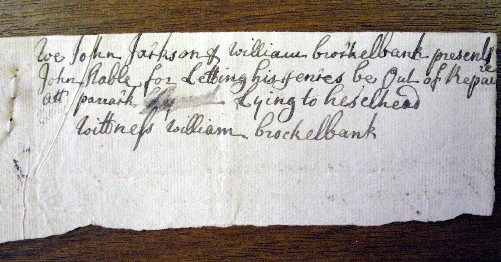 We John Jackson & William brockelbank presents
John Stable for Letting his fenies be Out of Repair
att parrack Lying to heselhead
Wittness William brockelbank